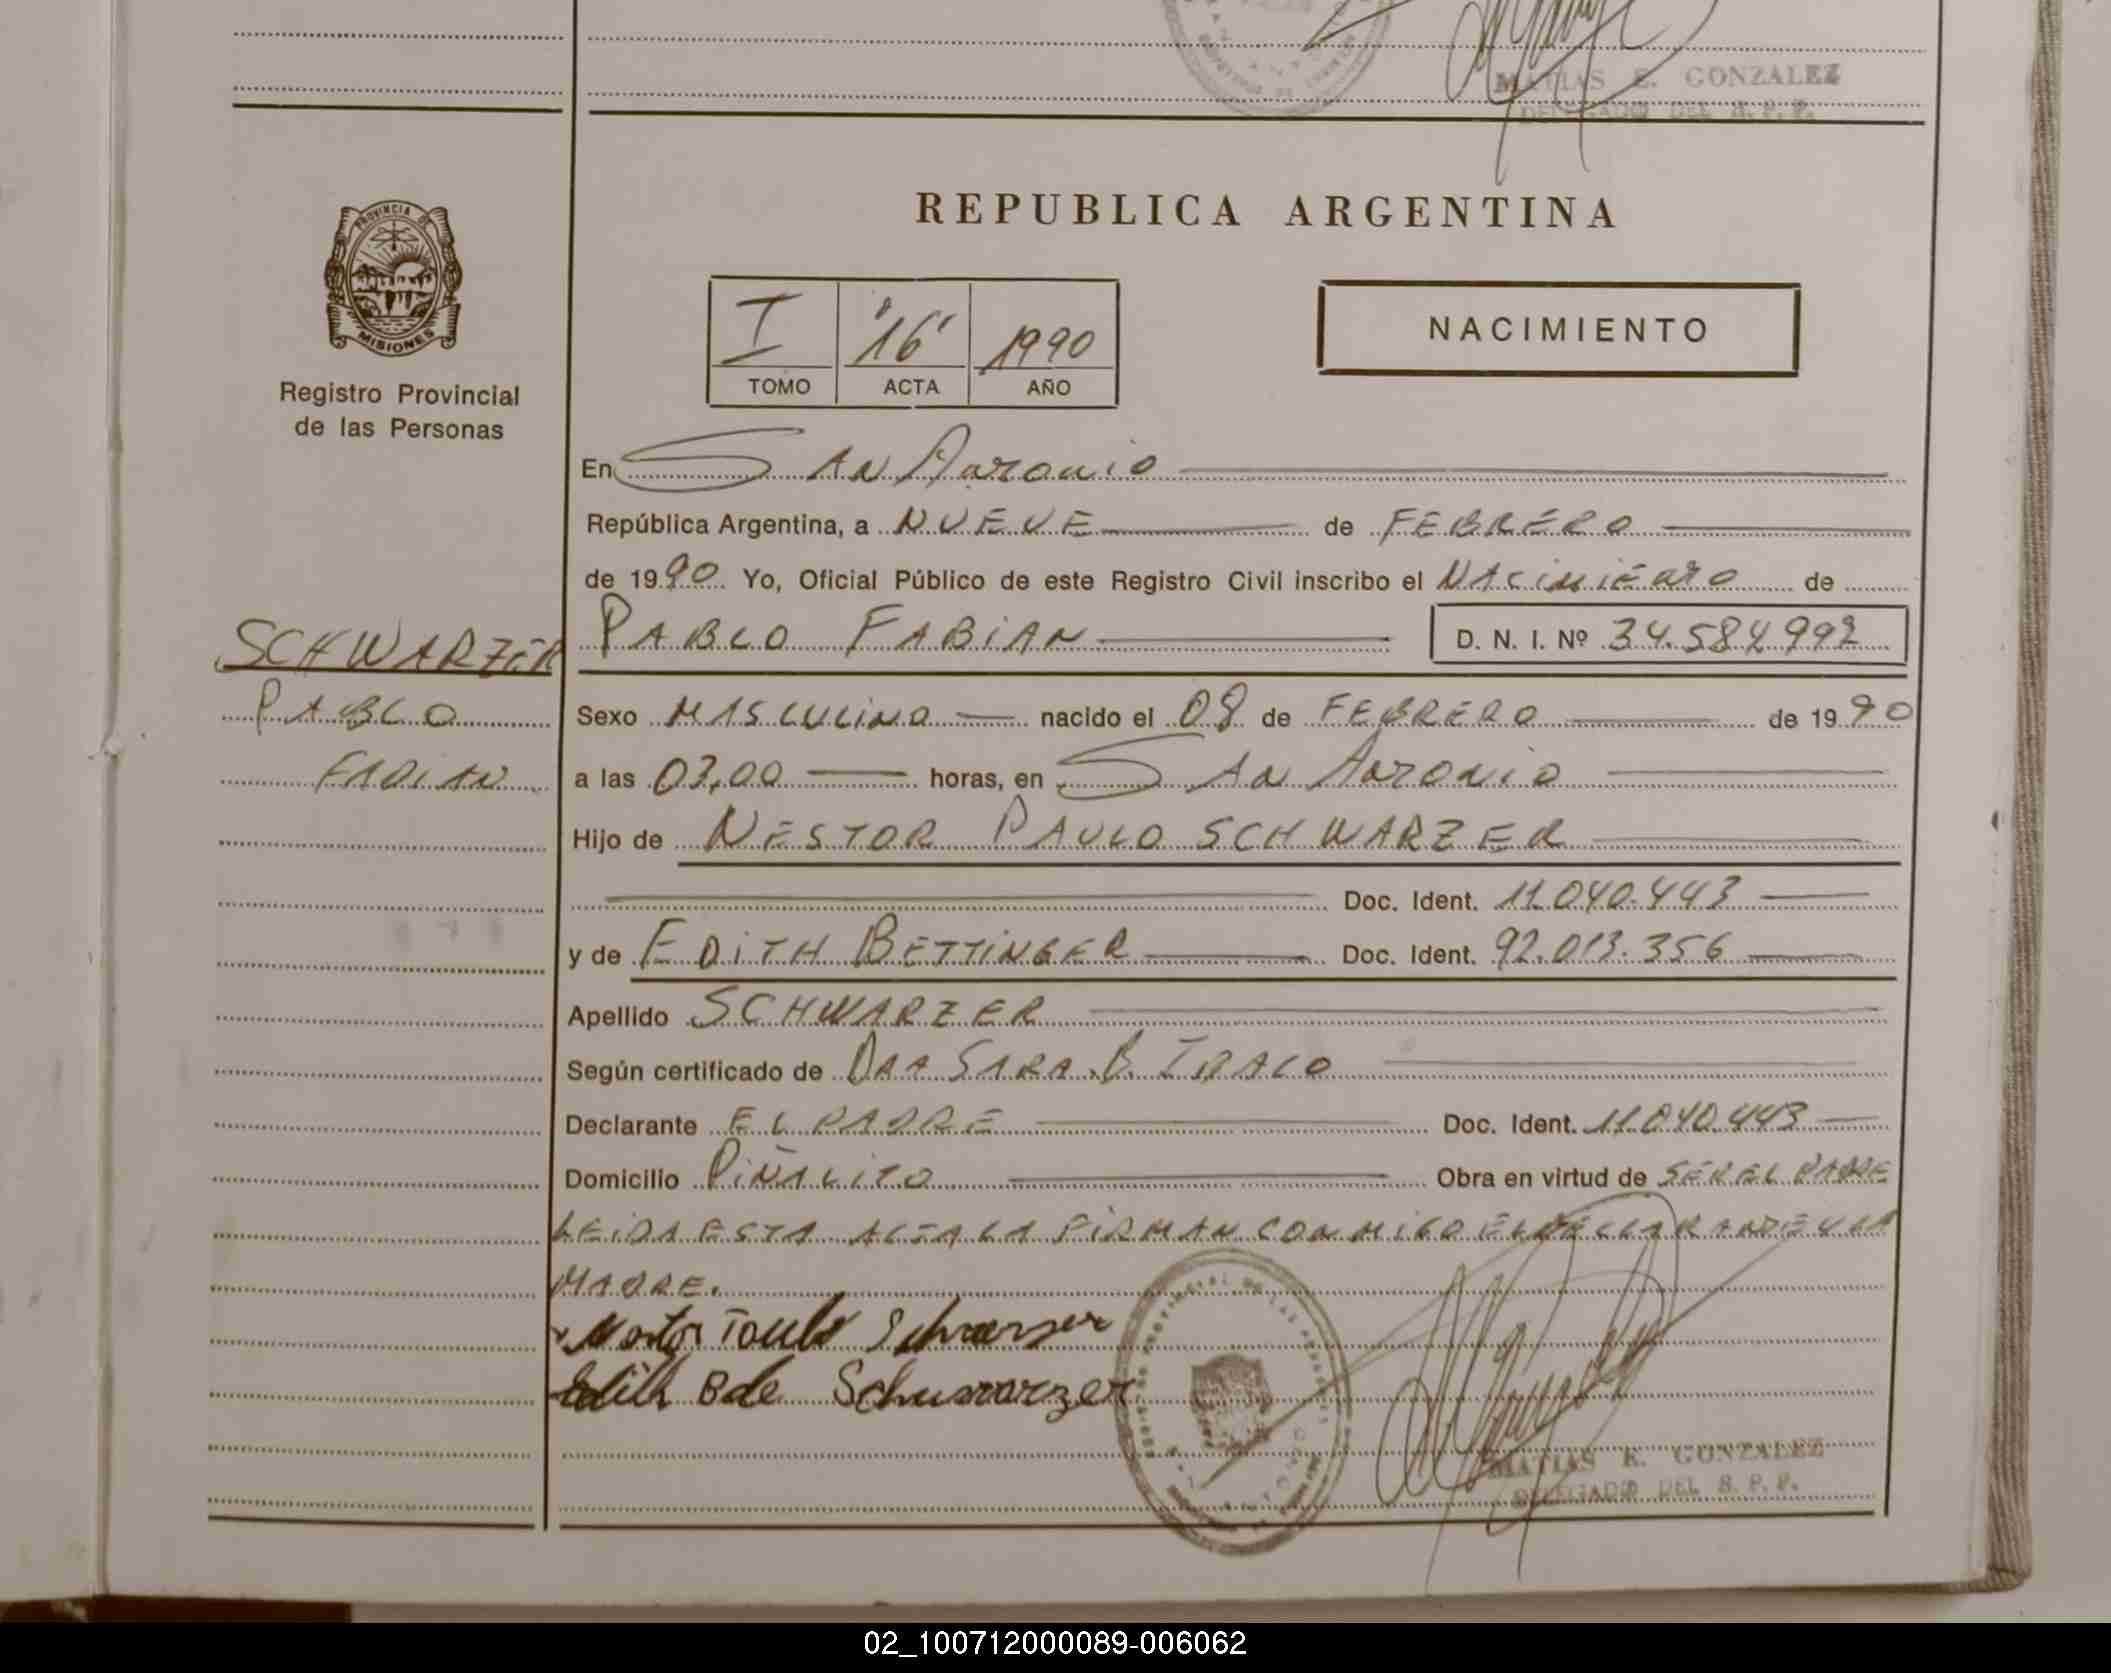 MATIAS E. GONZALEZ
DELEGADO DEL R. P. P.
REPUBLICA ARGENTINA
PROVINCIA DE
MISIONES
Registro Provincial
de las Personas
I '16' 1990
TOMO ACTA AÑO
NACIMIENTO
En San Antonio
República Argentina, a NUEVE de FEBRERO
de 1990 Yo, Oficial Público de este Registro Civil inscribo el NACIMIENTO de
SCHWARZER
PABLO
FABIAN
PABLO FABIAN D. N. I. Nº 34.584.992
Sexo MASCULINO nacido el 08 de FEBRERO de 1990
a las 03,00 horas, en San Antonio
Hijo de NESTOR PAULO SCHWARZER
Doc. Ident. 11.040.443
y de EDITH BETTINGER Doc. Ident. 92.013.356
Apellido SCHWARZER
Según certificado de DRA SARA B.
Declarante EL PADRE Doc. Ident. 11.040.443
Domicilio PIÑALITO Obra en virtud de SER EL PADRE
LEIDA ESTA ACTA LA FIRMAN CONMIGO EL DECLARANTE Y LA
MADRE.
Nestor Paulo Schwarzer
Edith B de Schwarzer
MATIAS E. GONZALEZ
DELEGADO DEL R. P. P.
02_100712000089-006062